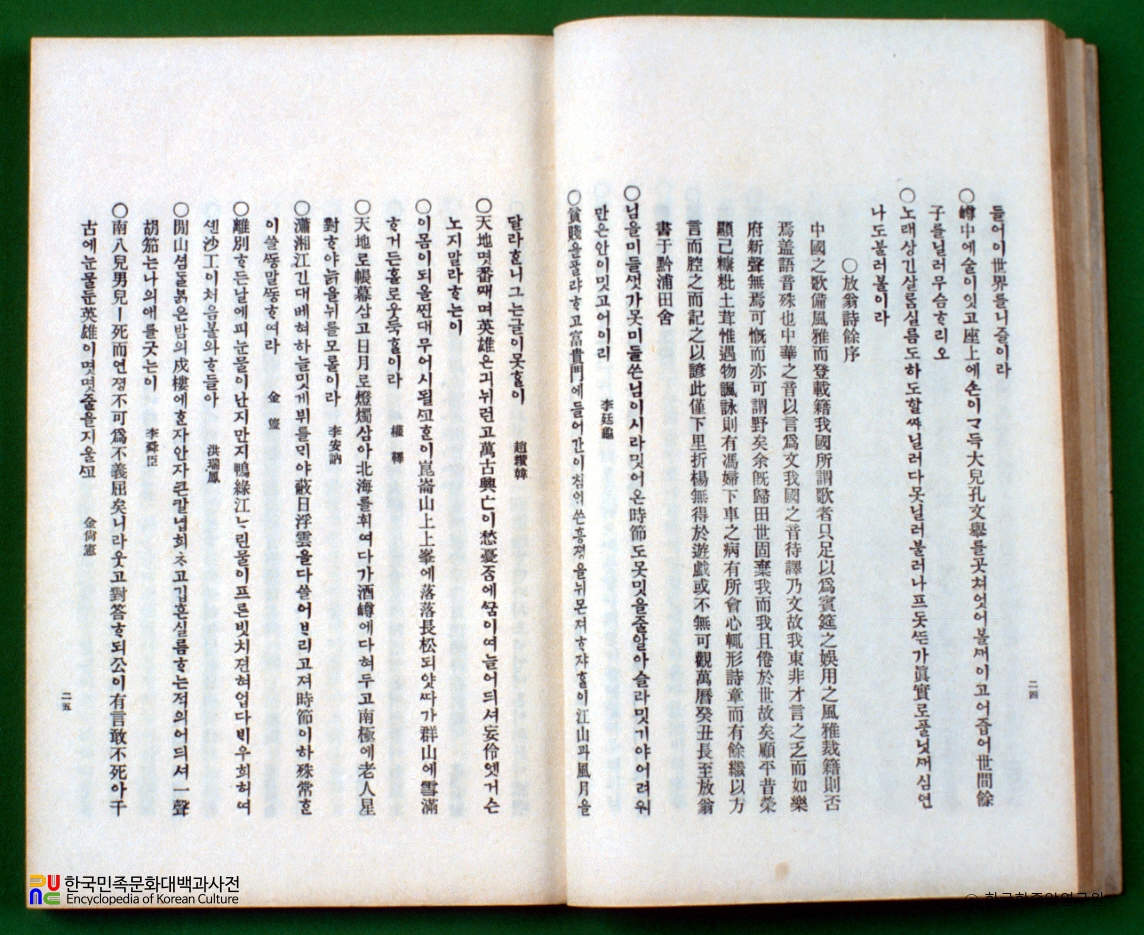 들어이世界를니줄이라
○樽中에술이잇고座上에손이ᄀ득大兒孔文擧를곳쳐엇어볼ᄭᅢ이고어즙어世間餘
子를닐러무슴ᄒ리오
○노래샹긴살롬실름도하도할ᄭᅡ닐러다못닐러불러나프돗ᄯᅥᆫ가眞實로플닛ᄭᅢ심연
나도불러볼이라
○放翁詩餘序
中國之歌備風雅而登載籍我國所謂歌者只足以爲賓筵之娛用之風雅裁籍則否
焉盖語音殊也中華之音以言爲文我國之音待譯乃文故我東非才言之乏而如樂
府新聲無焉可慨而亦可謂野矣余旣歸田世固棄我而我且倦於世故矣顧平昔榮
顯已糠粃土苴惟遇物諷詠則有馮婦下車之病有所會心輒形詩章而有餘繼以方
言而腔之而記之以諺此僅下里折楊無得於遊戱或不無可觀萬曆癸丑長至放翁
書于黔浦田舍
○님을미들썻가못미들쓴님이시라밋어온時節도못밋을줄알아슬라밋기야어려워
만은안이밋고어이리 李廷龜
○貧賤을ᄑᆞᆯ랴ᄒ고富貴門에들어간이침업쓴흥졍을뉘몬져ᄒ쟈ᄒ이江山과風月을
二四
달라ᄒ니그는글이못ᄒ이 趙纘韓
○天地몃番ᄶᅢ며英雄은긔뉘런고萬古興亡이愁憂ᄌᆞᆷ에ᄭᅮᆷ이여늘어듸셔妄伶엣거슨
노지말라ᄒ는이
○이몸이되올찐대무어시될ᄭᅩᄒ이崑崙山上上峯에落落長松되얏ᄯᅡ가群山에雪滿
ᄒ거든홀로웃득ᄒ이라 權韠
○天地로帳幕삼고日月로燈燭삼아北海를휘여다가酒樽에다혀두고南極에老人星
對ᄒ야늙을뉘를모롤이라 李安訥
○瀟湘江긴대베혀하늘밋게뷔를ᄆᆡ야蔽日浮雲을다쓸어ᄇᆞ리고져時節이하殊常ᄒ
이쓸ᄯᅩᆼ말ᄯᅩᆼᄒ여라 金瑬
○離別ᄒ든날에피눈물이난지만지鴨綠江ᄂᆞ린물이프른빗치젼혀업다ᄇᆡ우희허여
셴沙工이처음볼와ᄒ들아 洪瑞鳳
○閒山셤ᄃᆞᆯ붉은밤의戍樓에호자안자큰칼녑희ᄎᆞ고깁흔실름ᄒ는적의어듸셔一聲
胡笳는나의애를긋는이 李舜臣
○南八兒男兒ㅣ死而연졍不可爲不義屈矣니라웃고對答ᄒ되公이有言敢不死아千
古에눈물둔英雄이몃몃줄을지울ᄭᅩ 金尙憲
二五
한국민족문화대백과사전
Encyclopedia of Korean Culture